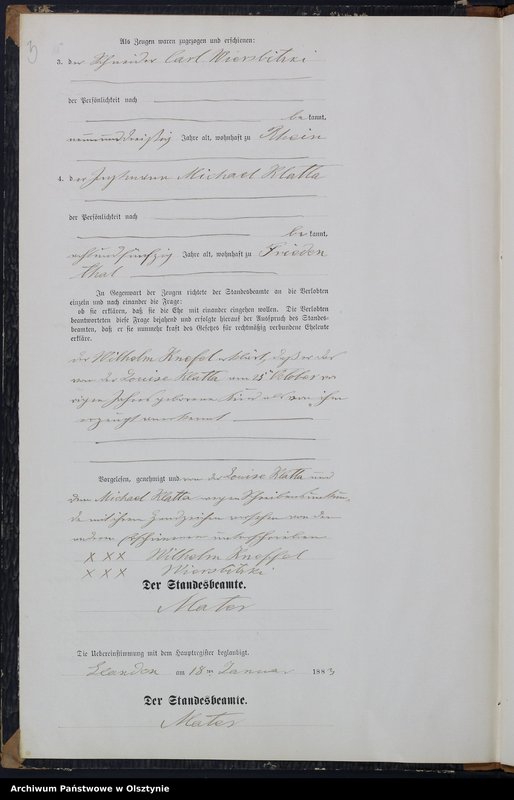 3
Als Zeugen waren zugezogen und erschienen:
3. der Schneider Carl Wiersbitzki
der Persönlichkeit nach
be kannt,
neununddreißig Jahre alt, wohnhaft zu Rhein
4. der Michael Klatta
der Persönlichkeit nach
be kannt,
achtundfünfzig Jahre alt, wohnhaft zu Frieden
thal
In Gegenwart der Zeugen richtete der Standesbeamte an die Verlobten
einzeln und nach einander die Frage:
ob sie erklären, daß sie die Ehe mit einander eingehen wollen. Die Verlobten
beantworteten diese Frage bejahend und erfolgte hierauf der Ausspruch des Standes-
beamten, daß er sie nunmehr kraft des Gesetzes für rechtmäßig verbundene Eheleute
erkläre.
der Wilhelm erklärt, daß er das
von der Louise Klatta am 15 October vo
rigen Jahres geborene Kind als von ihm
erzeugt anerkennt
Vorgelesen, genehmigt und von der Louise Klatta und
dem Michael Klatta wegen
mit ihren Handzeichen versehen von den
anderen unterschrieben
XXX Wilhelm Kneffel
XXX Wiersbitzki
Der Standesbeamte.
Mater
Die Uebereinstimmung mit dem Hauptregister beglaubigt.
am 18 ten Januar 1883
Der Standesbeamte.
Mater
Archiwum Państwowe w Olsztynie